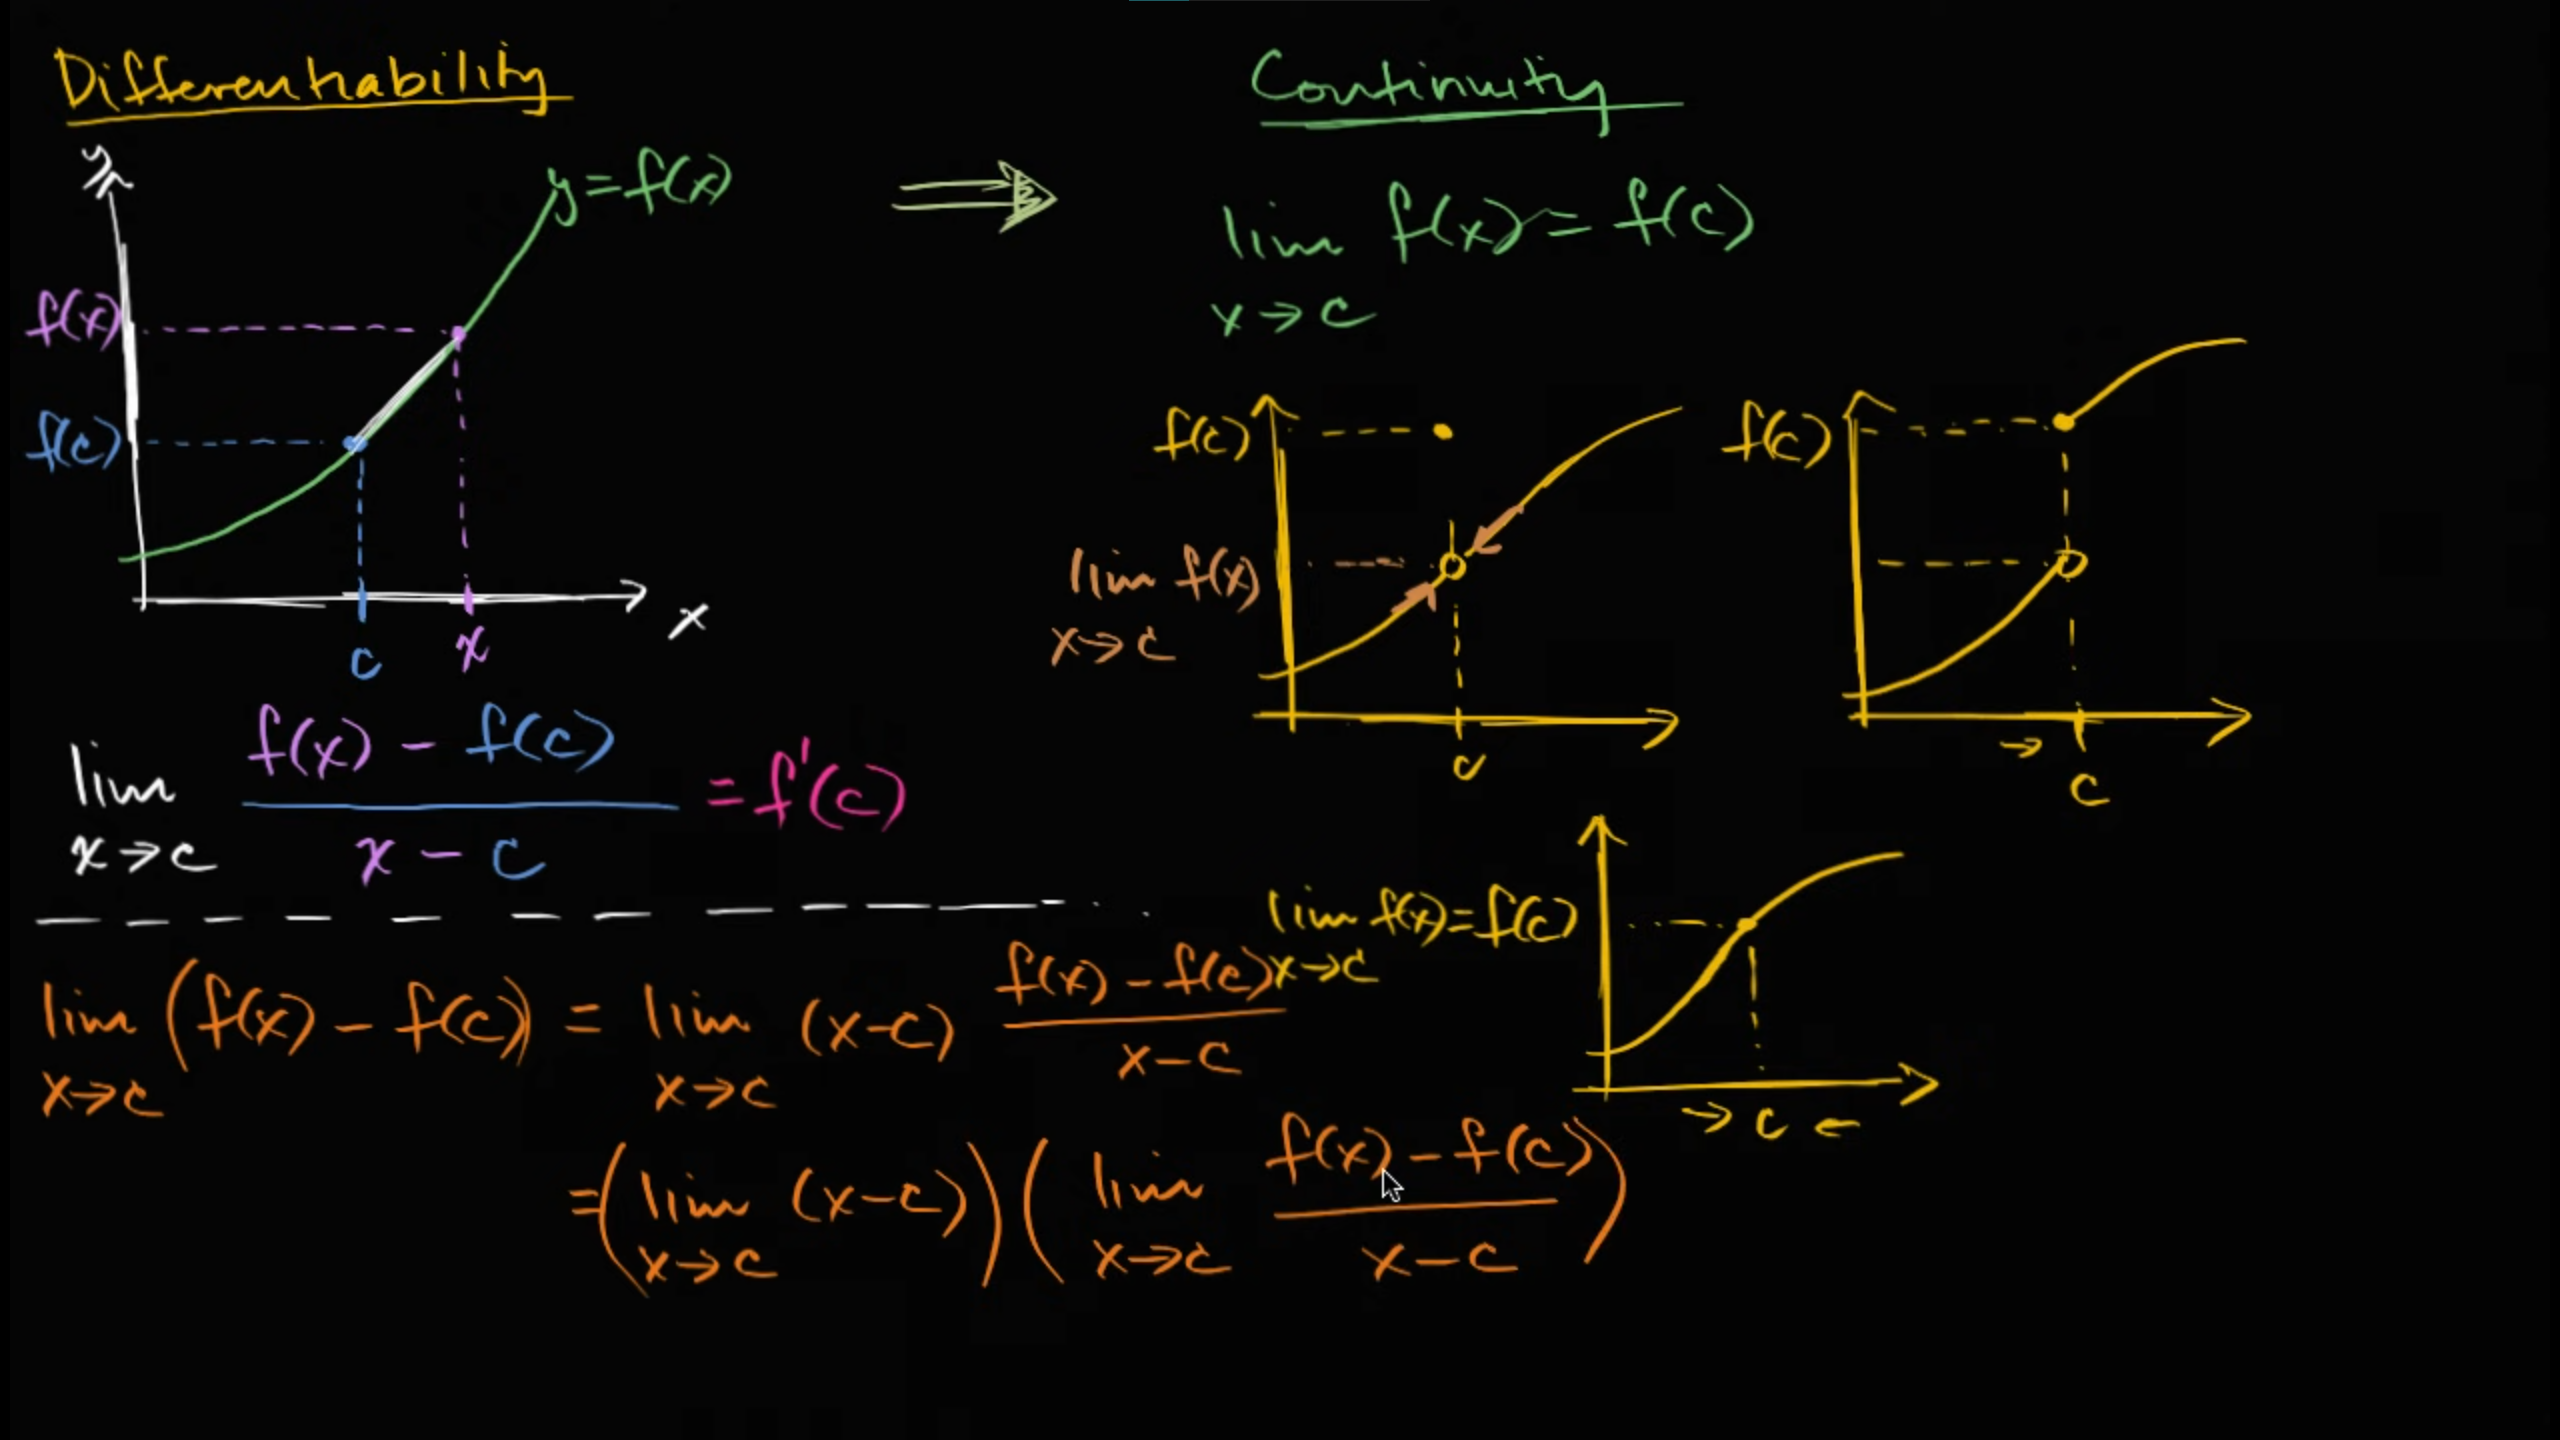 Differentiability
y
y=f(x)
f(x)
f(c)
x
c x
lim x→c (f(x) - f(c))/(x - c) = f'(c)
Continuity
lim x→c f(x) = f(c)
f(c)
lim x→c f(x)
c
f(c)
→
c
lim x→c f(x) = f(c)
→ c ←
lim x→c (f(x) - f(c)) = lim x→c (x-c) (f(x) - f(c))/(x-c)
= (lim x→c (x-c)) (lim x→c (f(x) - f(c))/(x-c))